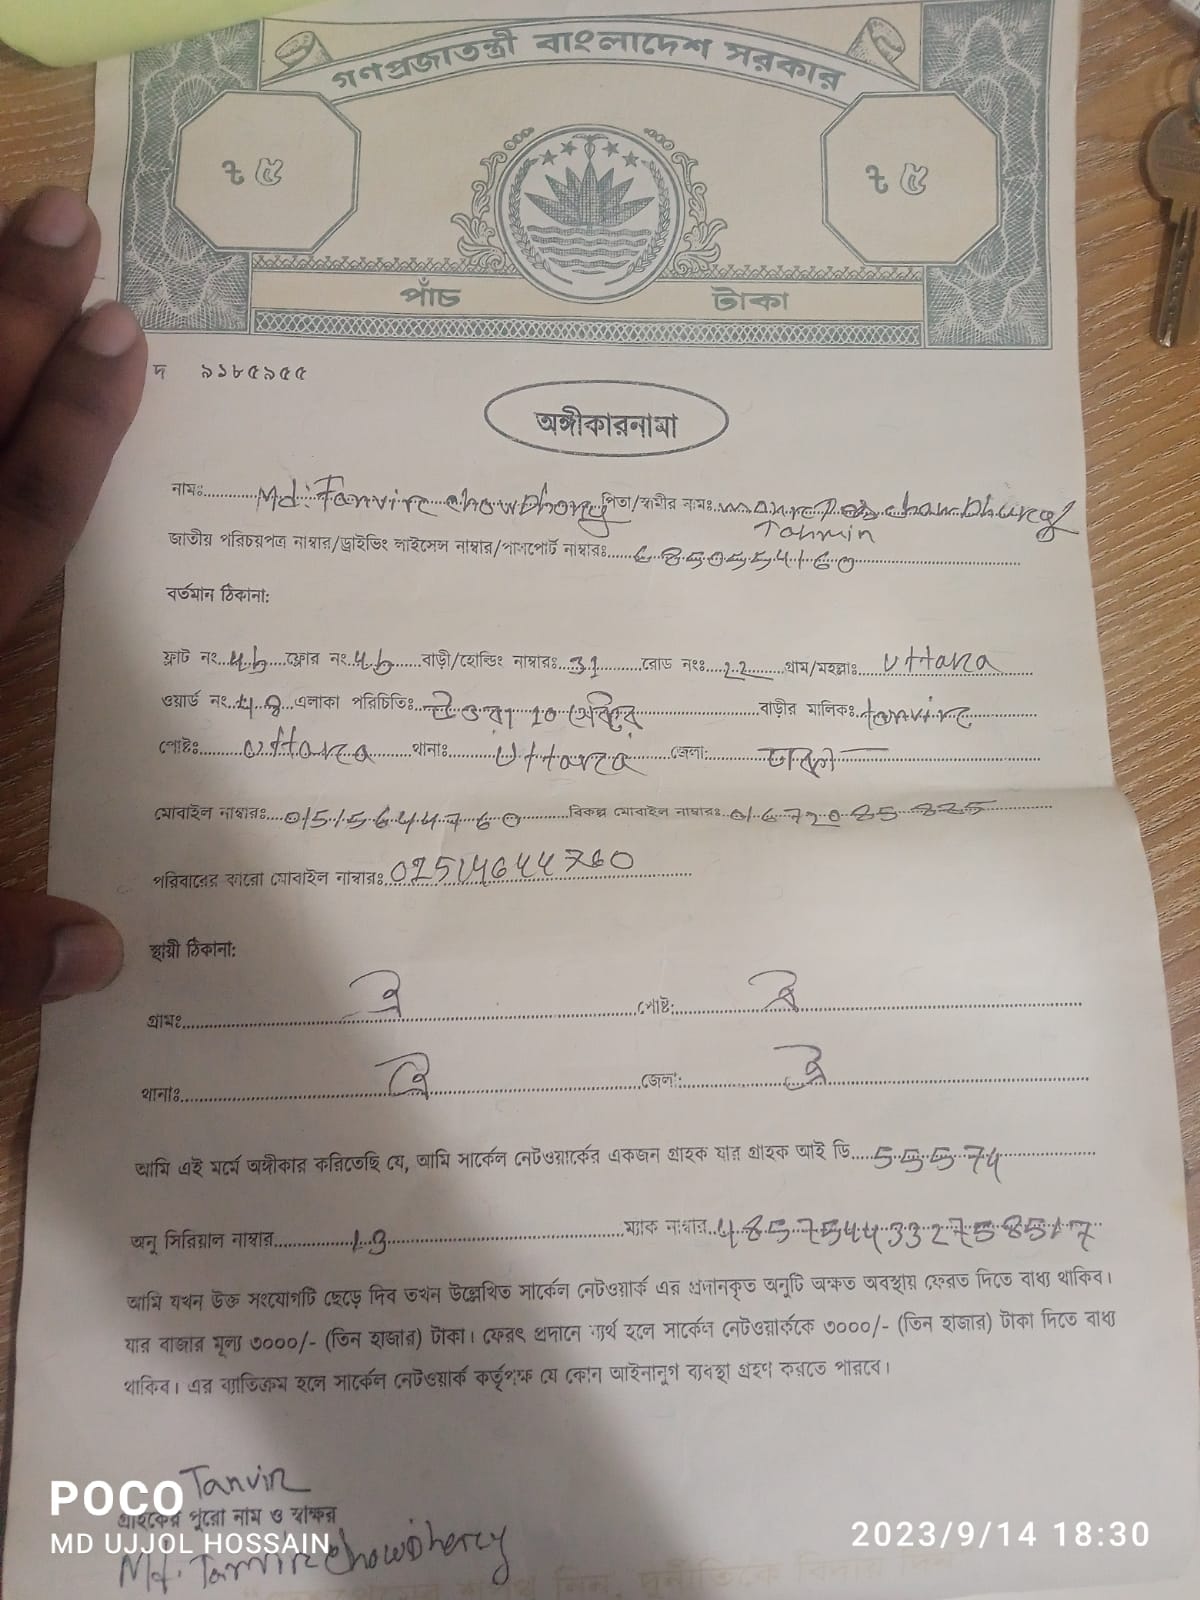 গণপ্রজাতন্ত্রী বাংলাদেশ সরকার
৳ ৫ ৳ ৫
পাঁচ টাকা
দ ৯১৮৫৯৫৫
অঙ্গীকারনামা
নামঃ Md: Tanvir chowDhory পিতা/স্বামীর নামঃ
Tahmin
জাতীয় পরিচয়পত্র নাম্বার/ড্রাইভিং লাইসেন্স নাম্বার/পাসপোর্ট নাম্বারঃ 6850554160
বর্তমান ঠিকানা:
ফ্লাট নং 4b ফ্লোর নং 4b বাড়ী/হোল্ডিং নাম্বারঃ 31 রোড নংঃ 22 গ্রাম/মহল্লাঃ Uttara
ওয়ার্ড নং এলাকা পরিচিতিঃ 10 বাড়ীর মালিকঃ tanvir
পোষ্টঃ uttara থানাঃ Uttara জেলা: ঢাকা
মোবাইল নাম্বারঃ 01515644760 বিকল্প মোবাইল নাম্বারঃ 01672085825
পরিবারের কারো মোবাইল নাম্বারঃ
স্থায়ী ঠিকানা:
গ্রামঃ ঐ পোষ্ট: ঐ
থানাঃ ঐ জেলা: ঐ
আমি এই মর্মে অঙ্গীকার করিতেছি যে, আমি সার্কেল নেটওয়ার্কের একজন গ্রাহক যার গ্রাহক আই ডি 55574
অনু সিরিয়াল নাম্বার 13 ম্যাক নাম্বার
আমি যখন উক্ত সংযোগটি ছেড়ে দিব তখন উল্লেখিত সার্কেল নেটওয়ার্ক এর প্রদানকৃত অনুটি অক্ষত অবস্থায় ফেরত দিতে বাধ্য থাকিব।
যার বাজার মূল্য ৩০০০/- (তিন হাজার) টাকা। ফেরৎ প্রদানে ব্যর্থ হলে সার্কেল নেটওয়ার্ককে ৩০০০/- (তিন হাজার) টাকা দিতে বাধ্য
থাকিব। এর ব্যতিক্রম হলে সার্কেল নেটওয়ার্ক কর্তৃপক্ষ যে কোন আইনানুগ ব্যবস্থা গ্রহণ করতে পারবে।
Tanvir
গ্রাহকের পুরো নাম ও স্বাক্ষর
Md. Tanvir chowDhery
POCO
MD UJJOL HOSSAIN
2023/9/14 18:30